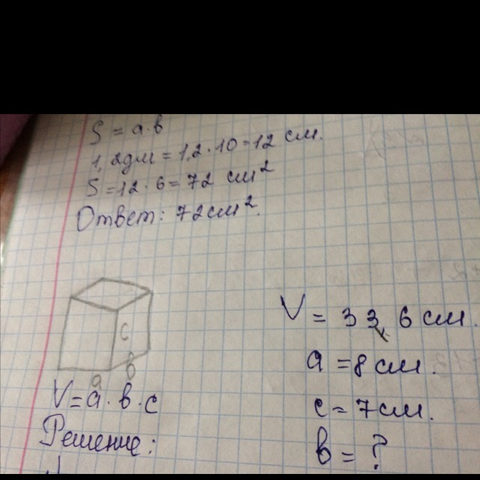 S = a·b
1,2дм = 1,2·10=12 см.
S=12·6=72 см²
Ответ: 72см².
c
b
a
V=a·b·c
Решение:
V = 33,6 см.
a =8 см.
c =7см.
b = ?